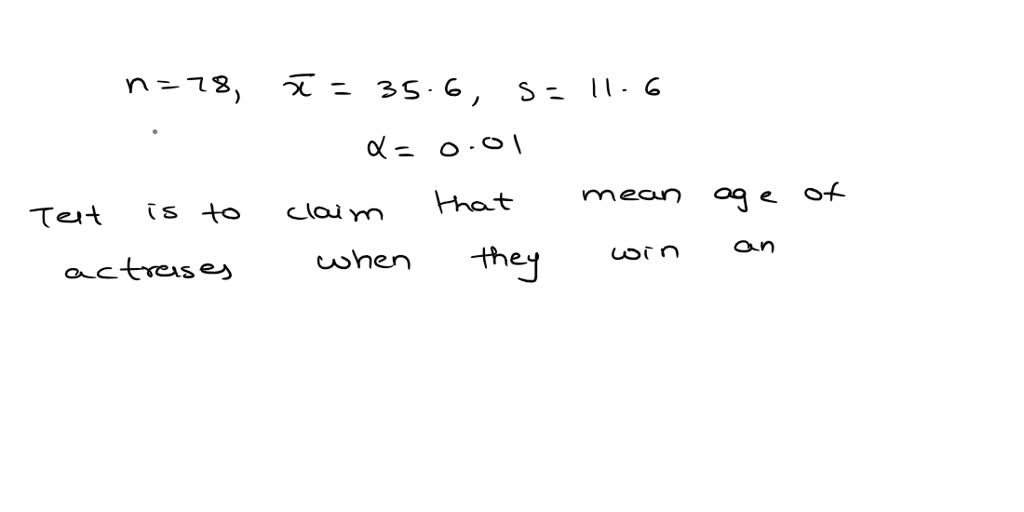 n = 78, x̄ = 35.6, s = 11.6
α = 0.01
Test is to claim that mean age of
actresses when they win an